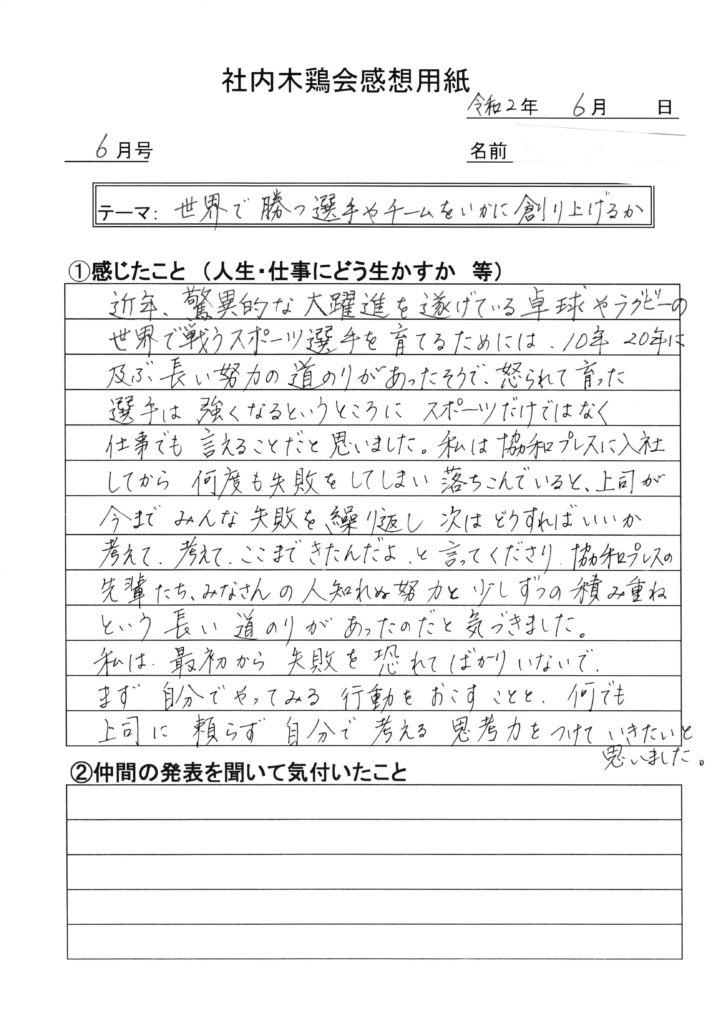 社内木鶏会感想用紙
令和2年 6月 日
6月号
名前
テーマ: 世界で勝つ選手やチームをいかに創り上げるか
①感じたこと (人生・仕事にどう生かすか 等)
近年、驚異的な大躍進を遂げている卓球やラグビーの
世界で戦うスポーツ選手を育てるためには、10年20年に
及ぶ長い努力の道のりがあったそうで、怒られて育った
選手は強くなるというところに スポーツだけではなく
仕事でも言えることだと思いました。私は協和プレスに入社
してから 何度も失敗をしてしまい落ちこんでいると、上司が
今まで みんな失敗を繰り返し 次はどうすればいいか
考えて、考えて、ここまできたんだよ、と言ってくださり、協和プレスの
先輩たち、みなさんの人知れぬ努力と少しずつの積み重ね
という 長い道のりがあったのだと気づきました。
私は、最初から失敗を恐れてばかりいないで、
まず 自分でやってみる 行動をおこすことと、何でも
上司に頼らず自分で考える 思考力をつけていきたいと
思いました。
②仲間の発表を聞いて気付いたこと